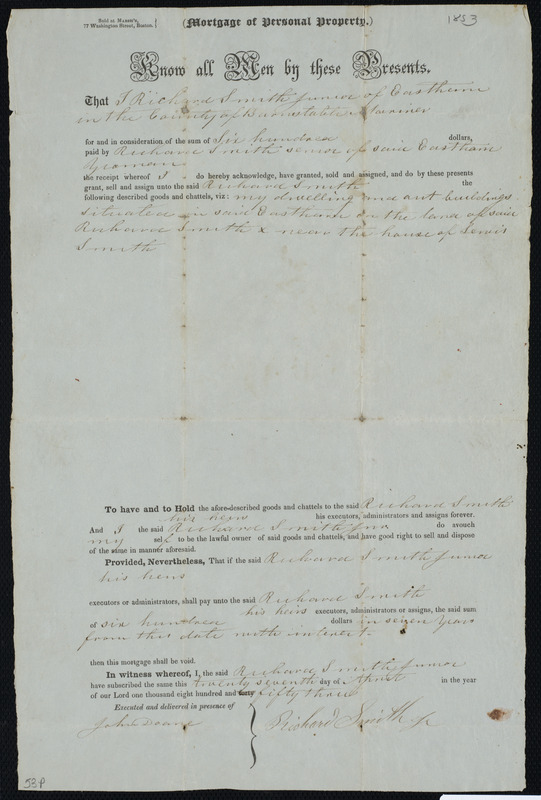 Sold at MARSH'S,
77 Washington Street, Boston.
(Mortgage of Personal Property.)
1853
Know all Men by these Presents.
That I Richard Smith junior of Eastham
in the County of Barnstable Mariner
for and in consideration of the sum of Six hundred dollars,
paid by Richard Smith senior of said Eastham
Yeoman
the receipt whereof I do hereby acknowledge, have granted, sold and assigned, and do by these presents
grant, sell and assign unto the said Richard Smith the
following described goods and chattels, viz: my dwelling and out buildings
situated in said Eastham on the land of said
Richard Smith & near the house of Lewis
Smith
To have and to Hold the afore-described goods and chattels to the said Richard Smith
his heirs his executors, administrators and assigns forever.
And I the said Richard Smith jnr do avouch
my self to be the lawful owner of said goods and chattels, and have good right to sell and dispose
of the same in manner aforesaid.
Provided, Nevertheless, That if the said Richard Smith junior
his heirs
executors or administrators, shall pay unto the said Richard Smith
his heirs executors, administrators or assigns, the said sum
of six hundred dollars in seven years
from this date with interest.
then this mortgage shall be void.
In witness whereof, I, the said Richard Smith junior
have subscribed the same this twenty seventh day of April in the year
of our Lord one thousand eight hundred and forty fifty three
Executed and delivered in presence of
John Doane
Richard Smith jr
53P